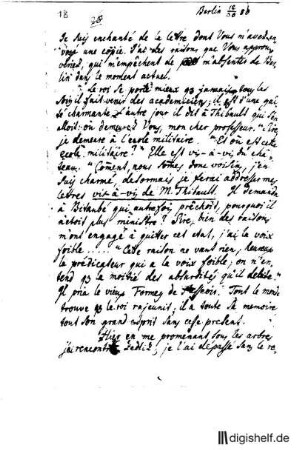 18 Berlin 12/30 88
28
Je suis enchanté de la lettre dont Vous m'avez en-
voyé une copie. J'ai des raisons que Vous approu-
veriez, qui m'empêchent de m'absenter de Ber-
lin dans le moment actuel.
Le roi se porte mieux que jamais, tous les
soirs il fait venir des academiciens, il est d'une gai-
té charmante, l'autre jour il dit à Thibault qui
alloit: où demeurez Vous, mon cher professeur. "Sire,
je demeure à l'ecole militaire. "Et où est cette
ecole militaire? "Elle est vis-à-vis du châ-
teau. "Coment, nous somes donc voisins, j'en
suis charmé, desormais, je ferai addresser mes
lettres vis-à-vis de M. Thibault. Il demanda
à Bitaubé qui autrefois prêchoit, pourquoi il
n'étoit plus ministre? Sire, bien des raisons
m'ont engagé à quitter cet etat, j'ai la voix
foible.... "Cette raison ne vaut rien,
le predicateur qui a la voix foible, on n'en-
tend que la moitié des absurdités qu'il debite."
Il prie le vieux Formey de Tout le monde
trouve que le roi rajeunit, il a toute sa memoire
tout son grand esprit sans cesse present.
Hier en me promenant sous les arbres
j'ai rencontré je l'ai dépassé sans le re-
digishelf.de